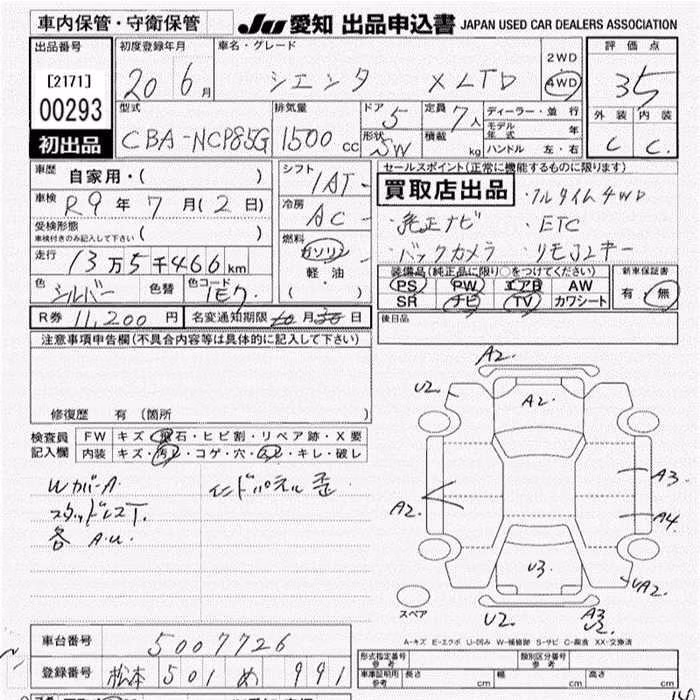 車内保管・守衛保管
JU 愛知 出品申込書 JAPAN USED CAR DEALERS ASSOCIATION
出品番号
[2171]
00293
初出品
初度登録年月
20 6月
車名・グレード
シエンタ XLTD
2WD
4WD
評価点
3.5
外装 内装
C C
型式
CBA-NCP85G
排気量
1500 cc
ドア 5
形状 SW
定員 7人
積載 kg
ディーラー・並行
モデル年式 年
ハンドル 左・右
車歴
自家用・( )
車検 R9年 7月(2日)
受検形態
車検付きのみ記入して下さい ( )
走行 13万5千466km
色 シルバー 色替 色コード 1E7
シフト
1AT
冷房
AC
燃料
ガソリン
軽・油
( )
セールスポイント(正常に機能するものに限ります)
買取店出品
・フルタイム4WD
・純正ナビ ・ETC
・バックカメラ ・リモコンキー
装備品(純正品に限り○をつけてください)
PS PW エアB AW
SR ナビ TV カワシート
新車保証書
有・無
R券 11,200円 名変通知期限 月 日
後日品
注意事項申告欄(不具合内容等は具体的に記入して下さい)
修復歴 有(箇所 )
検査員
記入欄
FW キズ・飛石・ヒビ割・リペア跡・X要
内装 キズ・汚レ・コゲ・穴・スレ・キレ・破レ
WカバーA
スタッドレスT.
各 A.U.
インドパネル歪
A2.
U2.
A2.
A2.
A3.
A4.
U3.
UA2.
U2.
A3
U2.
スペア
A-キズ E-エクボ U-凹み W-補修跡 S-サビ C-腐食 XX-交換済
車台番号 5007726
登録番号 松本 501 め 991
形式指定番号
参考
類別区分番号
参考
車庫証明用
参考
長さ cm 幅 cm 高さ cm